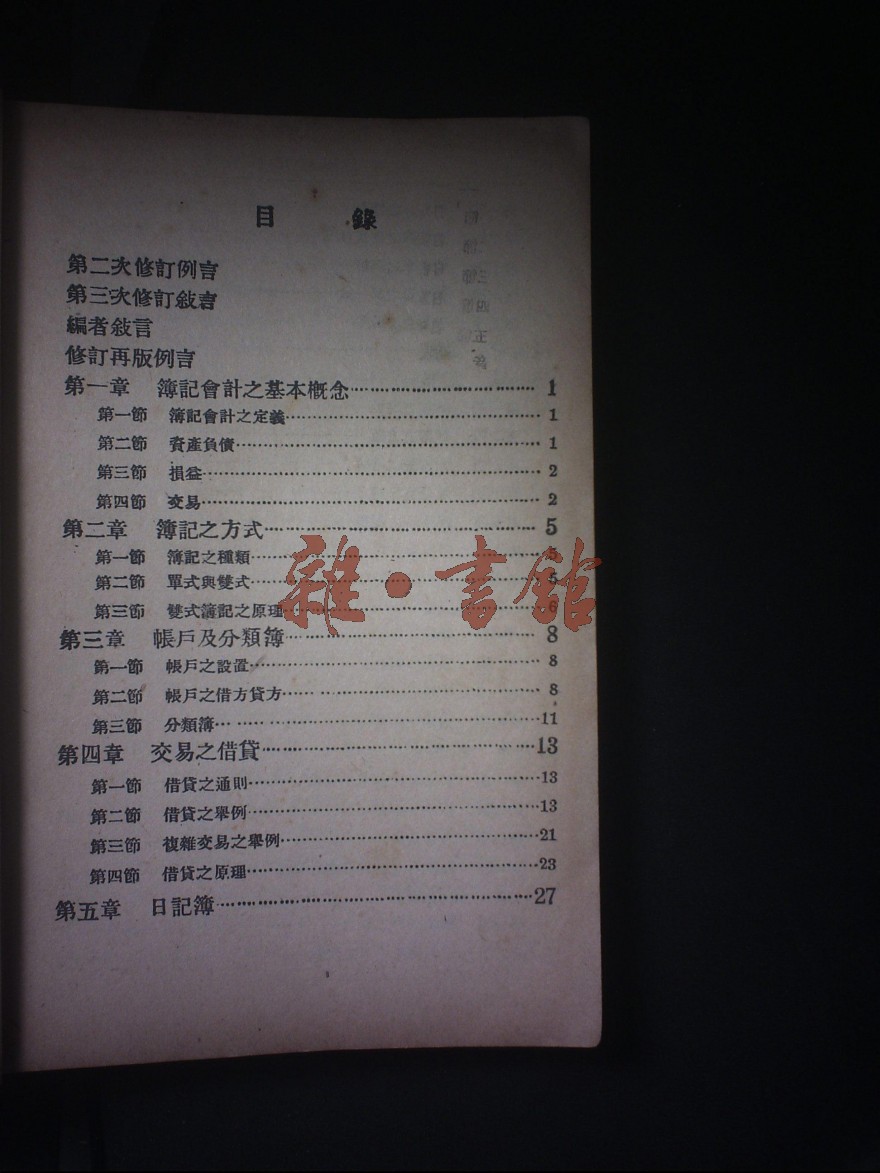 目 錄
第二次修訂例言
第三次修訂敍言
編者敍言
修訂再版例言
第一章 簿記會計之基本概念 1
第一節 簿記會計之定義 1
第二節 資產負債 1
第三節 損益 2
第四節 交易 2
第二章 簿記之方式 5
第一節 簿記之種類 5
第二節 單式與雙式 5
第三節 雙式簿記之原理 6
第三章 帳戶及分類簿 8
第一節 帳戶之設置 8
第二節 帳戶之借方貸方 8
第三節 分類簿 11
第四章 交易之借貸 13
第一節 借貸之通則 13
第二節 借貸之舉例 13
第三節 複雜交易之舉例 21
第四節 借貸之原理 23
第五章 日記簿 27
雜·書館